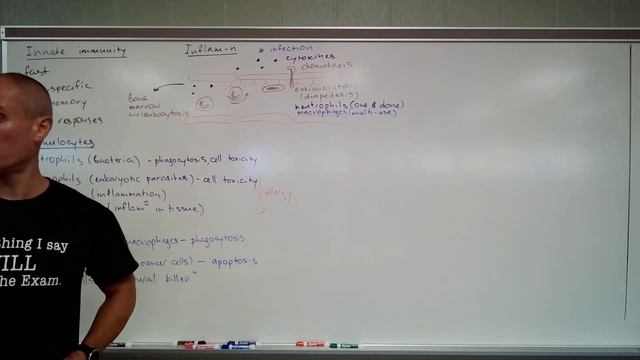 Innate immunity
fast
-specific
memory
responses
Inflam-n
* infection
cytokines
chemotaxis
extravasation
(diapedesis)
neutrophils (one & done)
macrophages (multi-use)
Bone
marrow
leukocytosis
nulocytes
trophils (bacteria) - phagocytosis, cell toxicity
ophils (eukaryotic parasites) - cell toxicity
(inflammation)
(inflam-n in tissue)
allergy
macrophages - phagocytosis
cancer cells) - apoptosis
tural killer"
thing I say
ILL
the Exam.